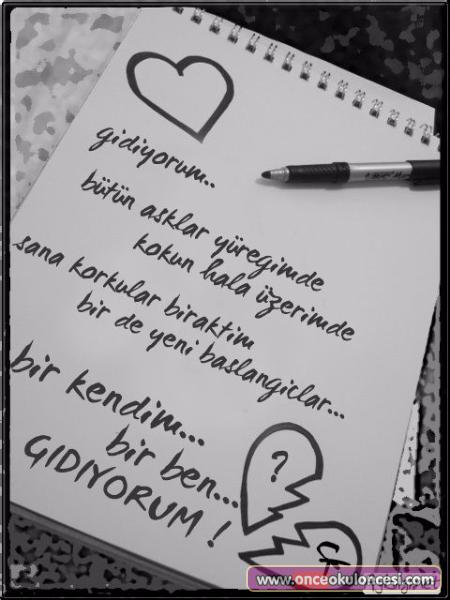 gidiyorum..
bütün asklar yüregimde
kokun hala üzerimde
sana korkular biraktim
bir de yeni baslangiclar...
bir kendim...
bir ben...
GIDIYORUM !
?
www.onceokuloncesi.com